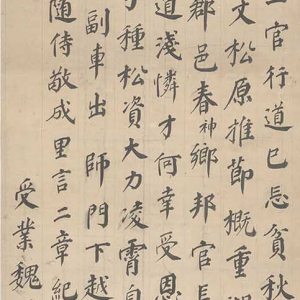 官行道已忘貧秋
文松原推節概重
郡邑春神鄉邦官長
道淺憐才何幸受恩
種松資大力凌霄
副車出 師門下越
隨侍敬成里言二章紀
受業魏